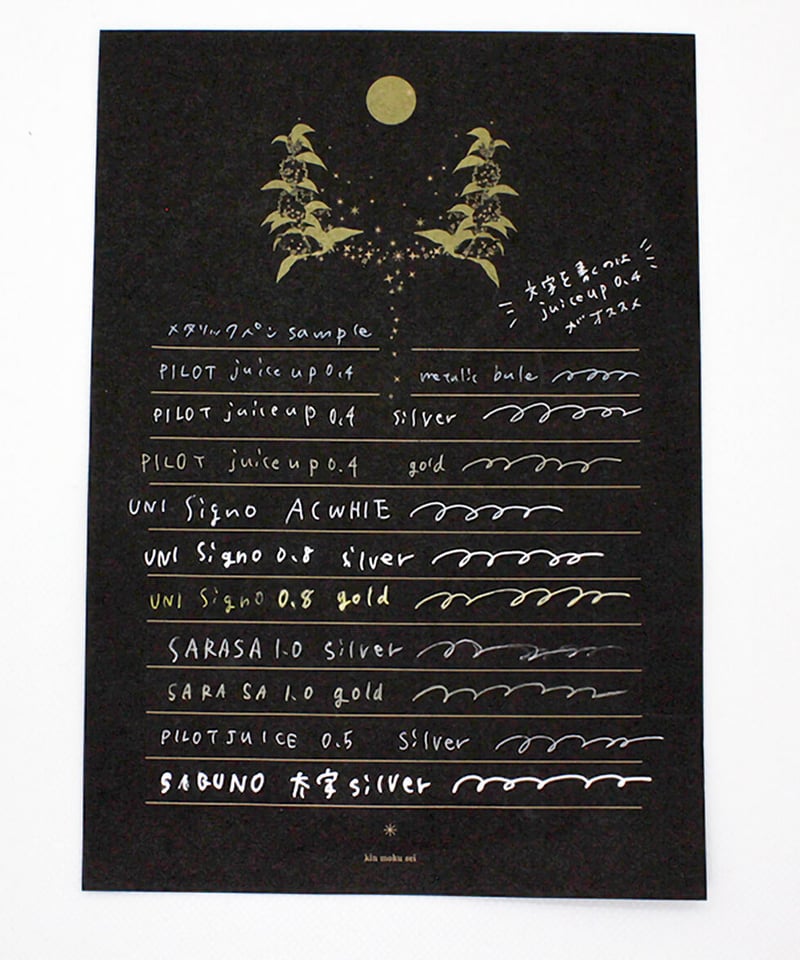 文字を書くのは
juice up 0.4
がオススメ
メタリックペン sample
PILOT juice up 0.4 metalic bule
PILOT juice up 0.4 silver
PILOT juice up 0.4 gold
UNI Signo ACWHIE
UNI Signo 0.8 silver
UNI Signo 0.8 gold
SARASA 1.0 silver
SARASA 1.0 gold
PILOT JUICE 0.5 Silver
SABUNO 太字 silver
kin moku sei